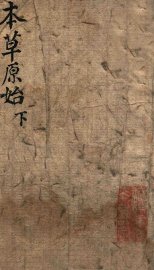 本草原始下